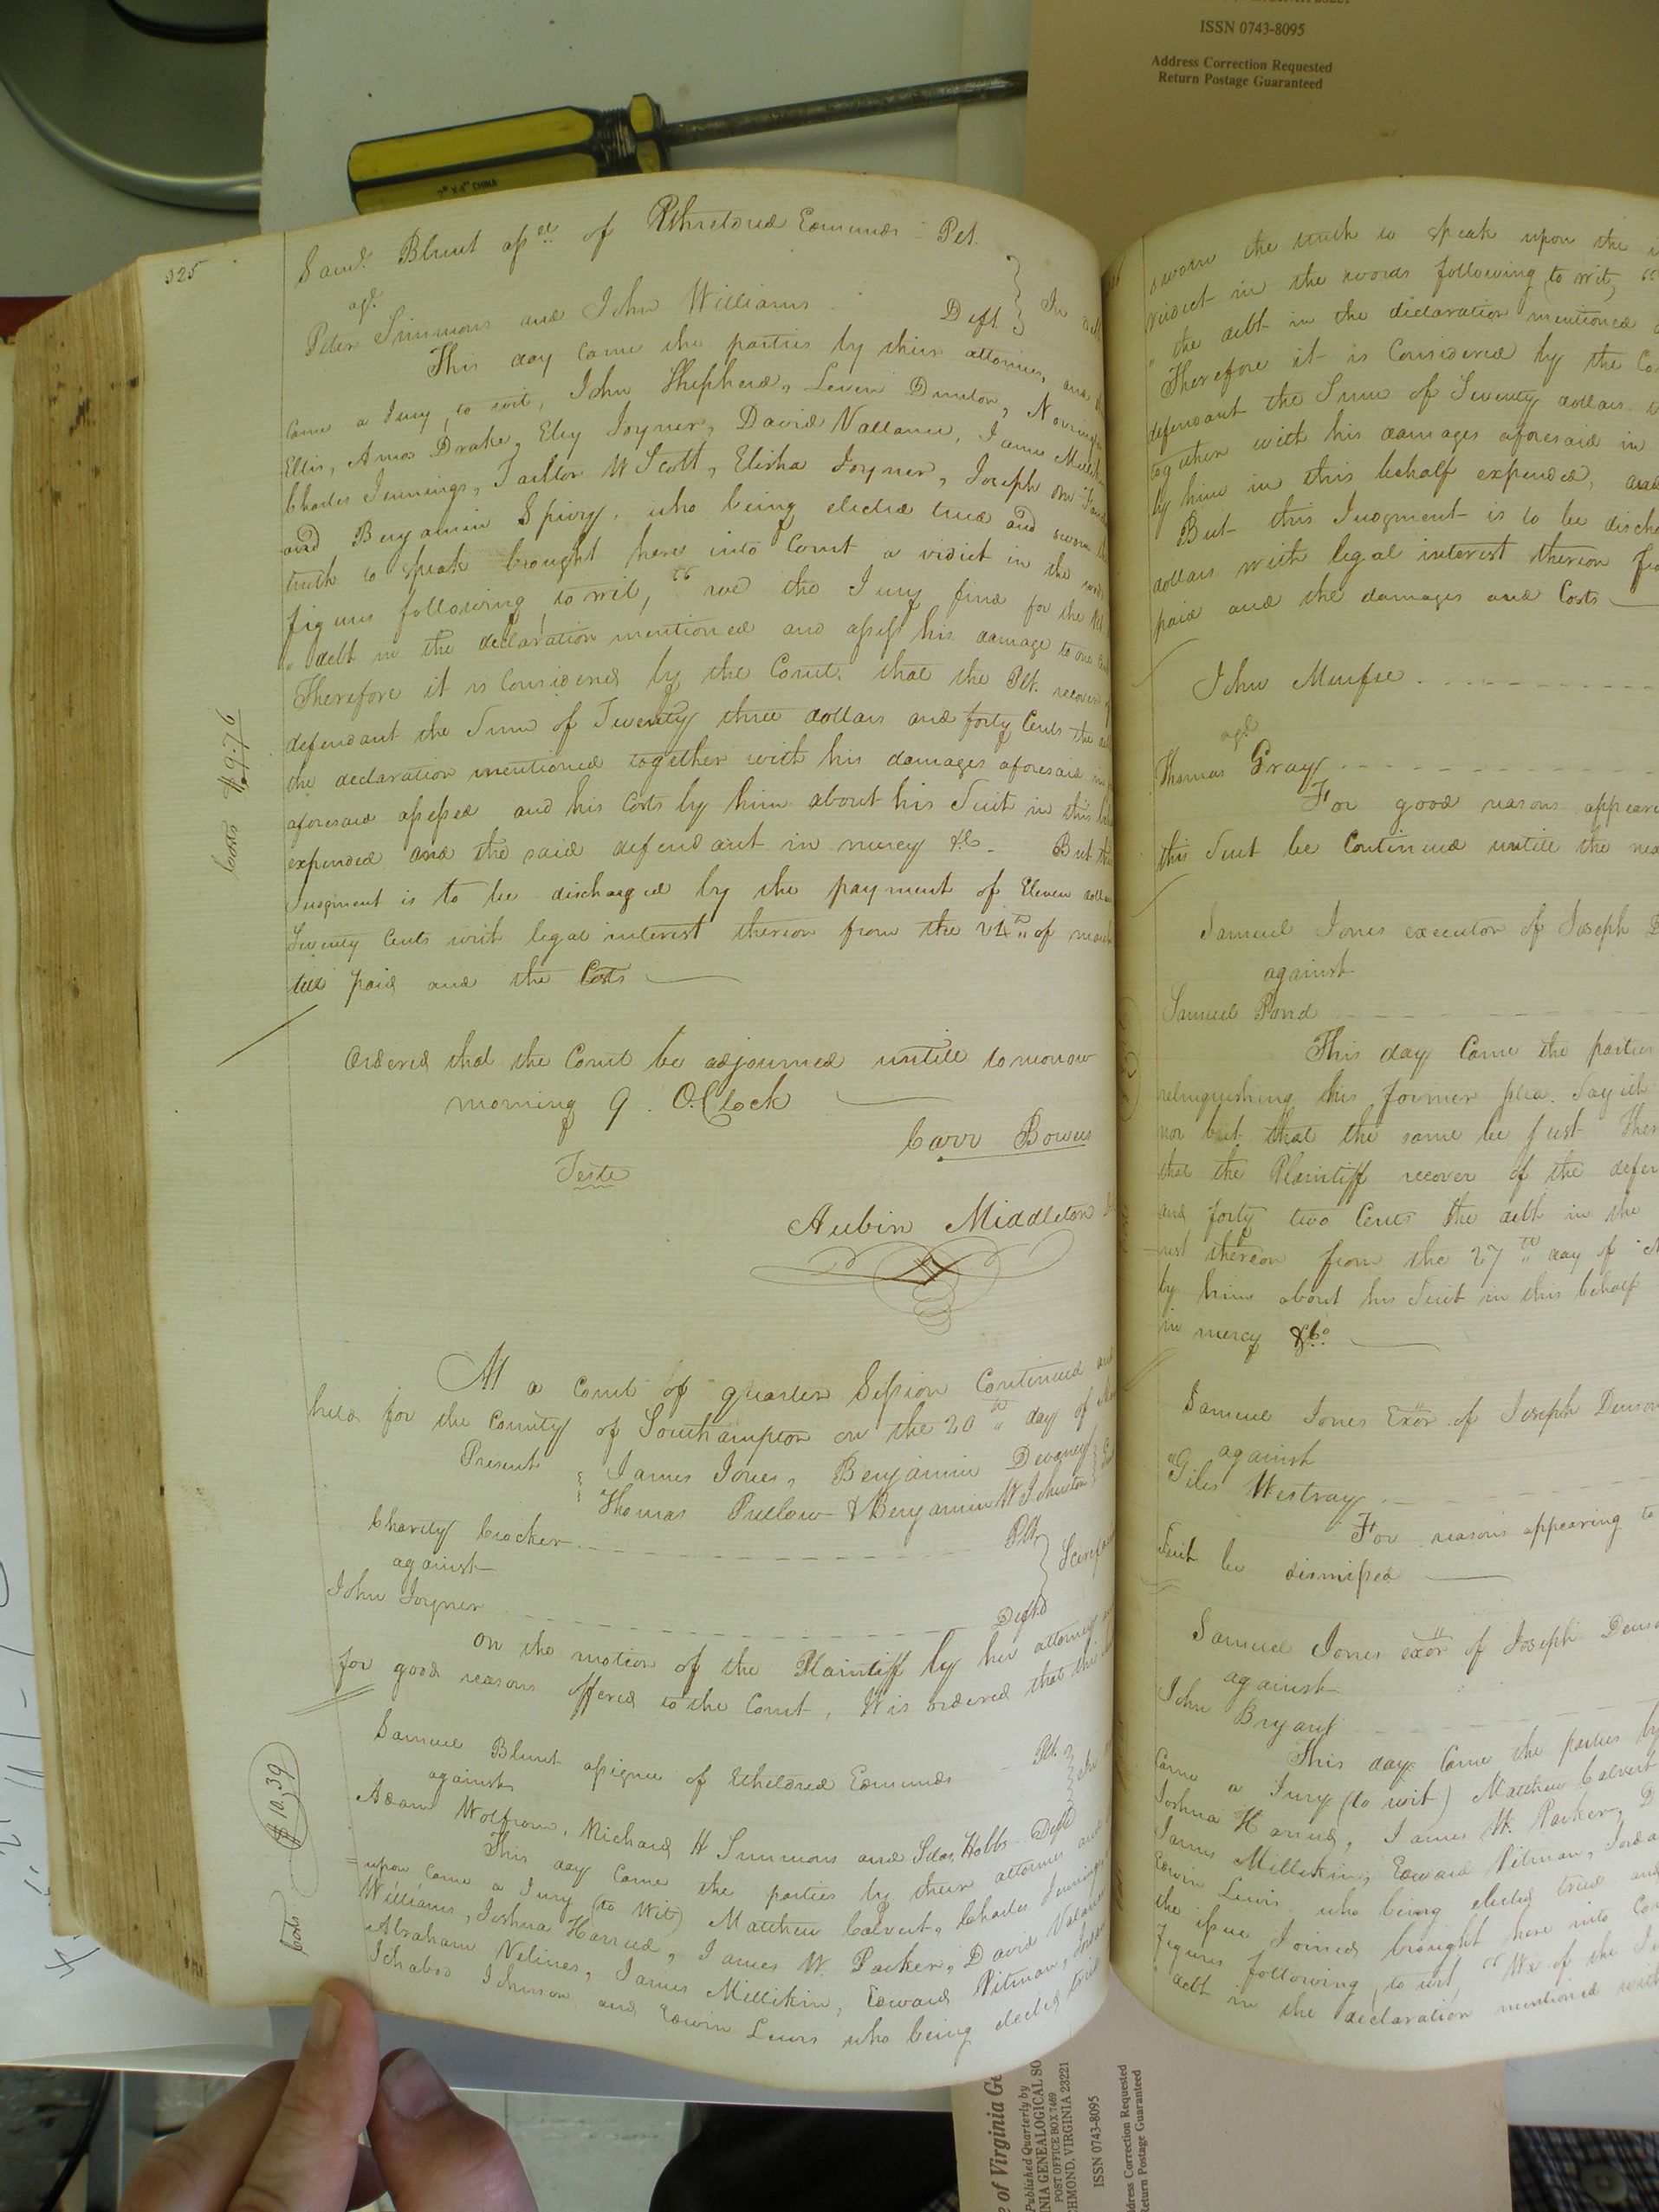 ISSN 0743-8095
Address Correction Requested
Return Postage Guaranteed
CHINA
325
Saml. Blunt assee. of Etheldred Edmunds Plt.
agt. In
Peter Simmons and John Williams Deft.
This day came the parties by their attornies, and
Came a Jury, to wit, John Shepherd, Leven Dunton,
Ellis, Amos Drake, Eley Joyner, David Vallance, James
Charles Jennings, Tailton W Scott, Elisha Joyner, Joseph
and Benjamin Spivy, who being elected tried and sworn the
truth to speak brought here into Court a virdict in the
figures following, to wit, "we the Jury find for the Plt.
" debt in the declaration mentioned and assess his damage to one
Therefore it is Considered by the Court, that the Plt. recover
defendant the Sum of Twenty three dollars and forty Cents the
the declaration mentioned together with his damages aforesaid in
aforesaid assessed and his Costs by him about his Suit in this
expended and the said defendant in mercy &c. But this
Judgment is to be discharged by the payment of Eleven dollars
Seventy Cents with legal interest thereon from the 24th of
till paid and the Costs
Costs $9.76
Ordered that the Court be adjourned untill tomorrow
morning 9. O.Clock
Carr Bowers
Teste
Aubin Middleton
At a Court of quarter Session Continued and
held for the County of Southampton on the 20th day of
Present James Jones, Benjamin Devaney
Thomas Pretlow & Benjamin W Johnston
Charity Crocker Plt.
against
John Joyner Deftd
on the motion of the Plaintiff by her attorney
for good reasons offered to the Court, It is ordered that this
Samuel Blunt assignee of Etheldred Edmunds Plt.
against
Adam Wolfrom, Richard H Simmons and Silas Hobbs Deftd
This day came the parties by their attornies and
upon came a Jury (to wit) Matthew Calvert, Charles Jennings,
Williams, Joshua Harred, James W. Parker, David
Abraham Nelmes, James Millikin, Edward Pitman,
Ichabod Johnson and Edwin Lewis who being elected tried
Costs $10.39
sworn the truth to speak upon the
virdict in the words following, to wit, "
" the debt in the declaration mentioned
Therefore it is Considered by the
defendant the Sum of Seventy dollars
together with his damages aforesaid in
by him in this behalf expended, and
But this Judgment is to be
dollars with legal interest thereon
paid and the damages and Costs
John Murfee
agt
Thomas Gray
For good reasons
this Suit be Continued untill the
Samuel Jones executor of Joseph
against
Samuel Pond
This day Came the parties
relinquishing his former plea. Saycth
nor but that the same be Just
that the Plaintiff recover of the
and forty two Cents the debt in the
rest thereon from the 27th day of
by him about his Suit in this behalf
in mercy &c.
Samuel Jones Exor of Joseph Denson
against
Giles Westray
For reasons appearing to
Suit be dismissed
Samuel Jones exor of Joseph
against
John Bryant
This day Came the parties by
Came a Jury (to wit) Matthew Calvert
Joshua Harred, James W. Parker,
James Millikin, Edward Pitman,
Edwin Lewis who being elected tried and
the issue Joined brought here into
Figures following, to wit "We of the
" debt in the declaration mentioned
of Virginia
Published Quarterly by
GENEALOGICAL
POST OFFICE BOX 7469
VIRGINIA 23221
ISSN 0743-8095
Address Correction Requested
Return Postage Guaranteed